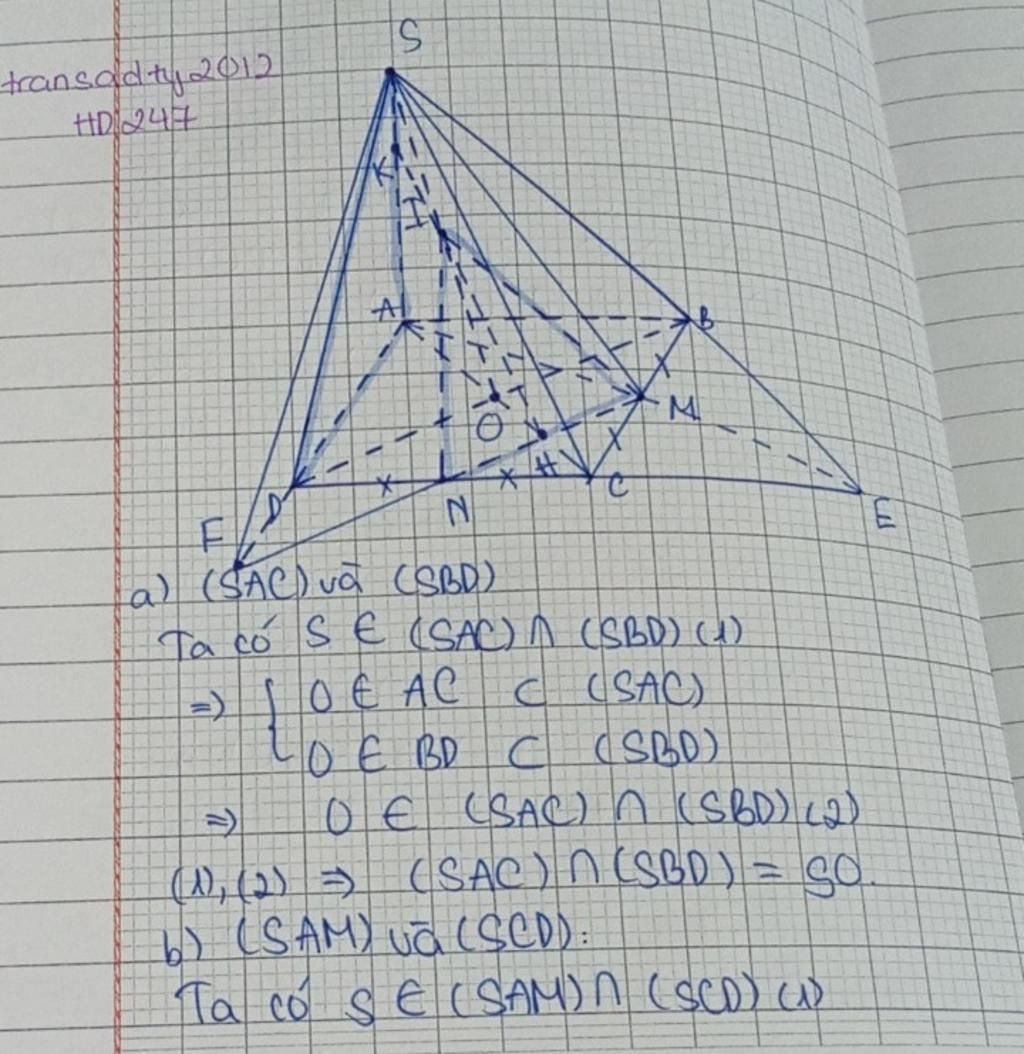 S
transadty2012
HD247
K
I
A
B
M
O
H
D
N
C
E
F
a) (SAC) và (SBD)
Ta có S ∈ (SAC) ∩ (SBD) (1)
=> { O ∈ AC ⊂ (SAC)
O ∈ BD ⊂ (SBD)
=> O ∈ (SAC) ∩ (SBD) (2)
(1), (2) => (SAC) ∩ (SBD) = SO.
b) (SAM) và (SCD):
Ta có S ∈ (SAM) ∩ (SCD) (1)